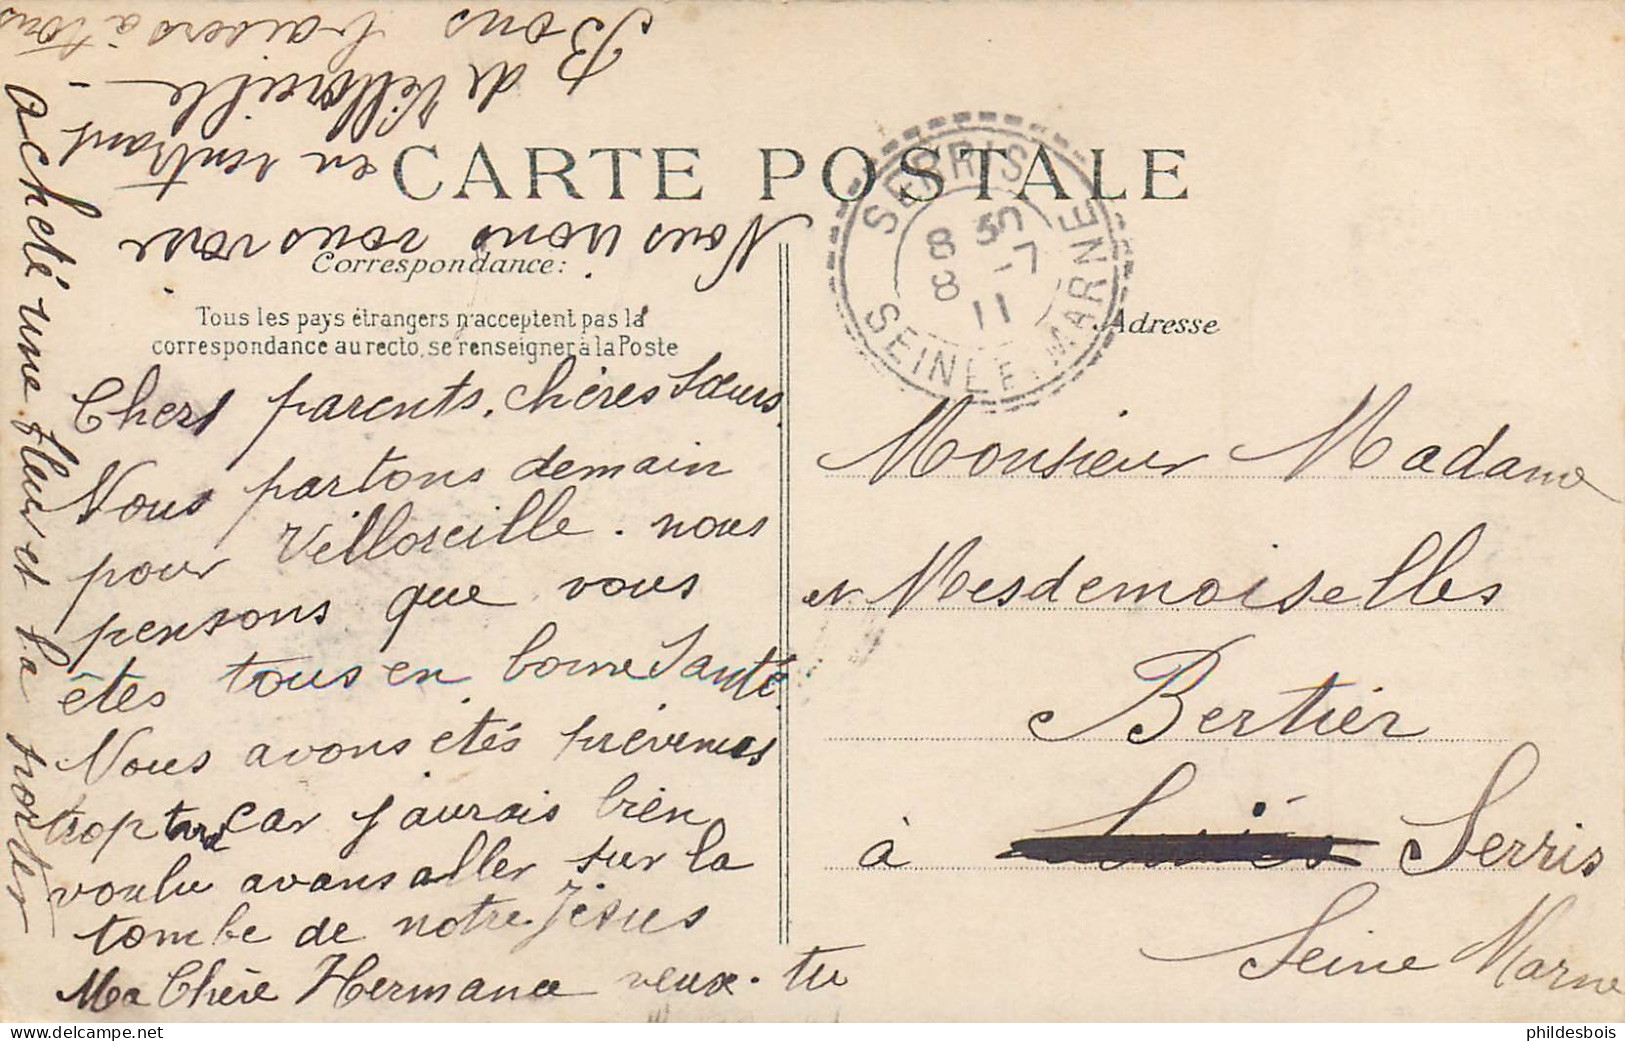 CARTE POSTALE
Correspondance:
Tous les pays étrangers n'acceptent pas la
correspondance au recto, se renseigner à la Poste
Chers parents. chères Sœurs.
Nous partons demain
pour Villoreille. nous
pensons que vous
êtes tous en bonne Santé.
Nous avons étés prévenues
trop tard car j'aurais bien
voulu avans aller sur la
tombe de notre Jésus
Ma Chère Hermance veux-tu
acheté une fleur et la porter
Nous irons vous voir
en rentrant
de Villoreille -
Bons baisers à tous
B
SERRIS
8 50
8 -7
11
SEINE-ET-MARNE
Adresse
Monsieur Madame
et Mesdemoiselles
Bertier
à Serris
Seine Marne
phildesbois